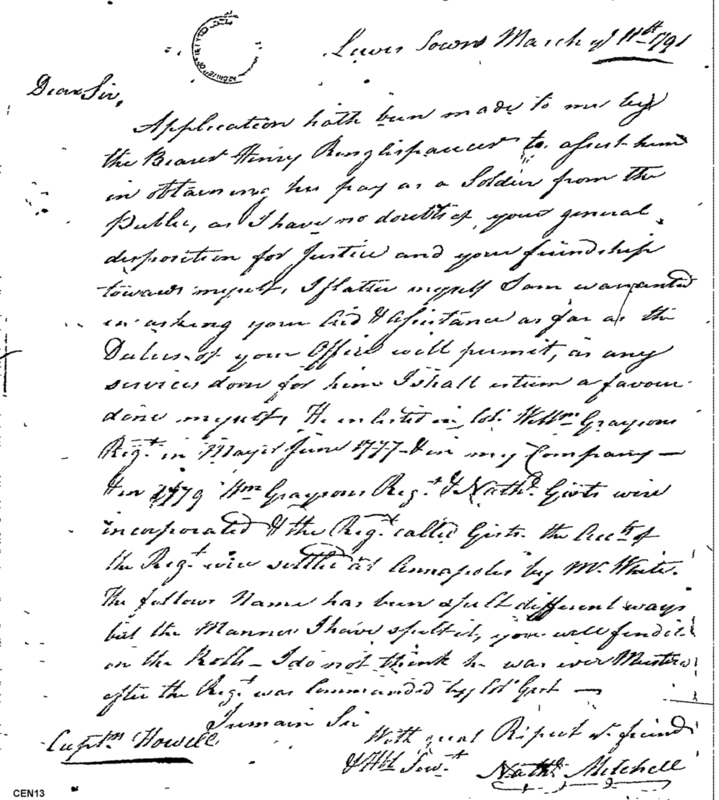 Lewis Town March 11th 1791
Dear Sir,
Application hath been made to me by
the Bearer Henry Ringlspaucer to assist him
in obtaining his pay as a Soldier from the
Public, as I have no doubts of your general
disposition for Justice and your friendship
towards myself, I flatter myself I am warranted
in asking your Aid & Assistance as far as the
Duties of your Office will permit, as any
services done for him I shall esteem a favour
done myself, He enlisted in Col. Willm Graysons
Regt in May or June 1777 & in my Company —
& in 1779 Wm Graysons Regt & Nathl Gists were
incorporated & the Regt called Gists. the Accts of
the Regt were settled at Annapolis by Mr White.
The fellows Name has been spelt different ways
but the Manner I have spelt it, you will find it
on the Rolls — I do not think he was ever Mustered
after the Regt was Commanded by Col Gist —
I remain Sir
With great Respect yr friend
& Hbl Servt
Captn Howell
Nathl Mitchell
CEN13